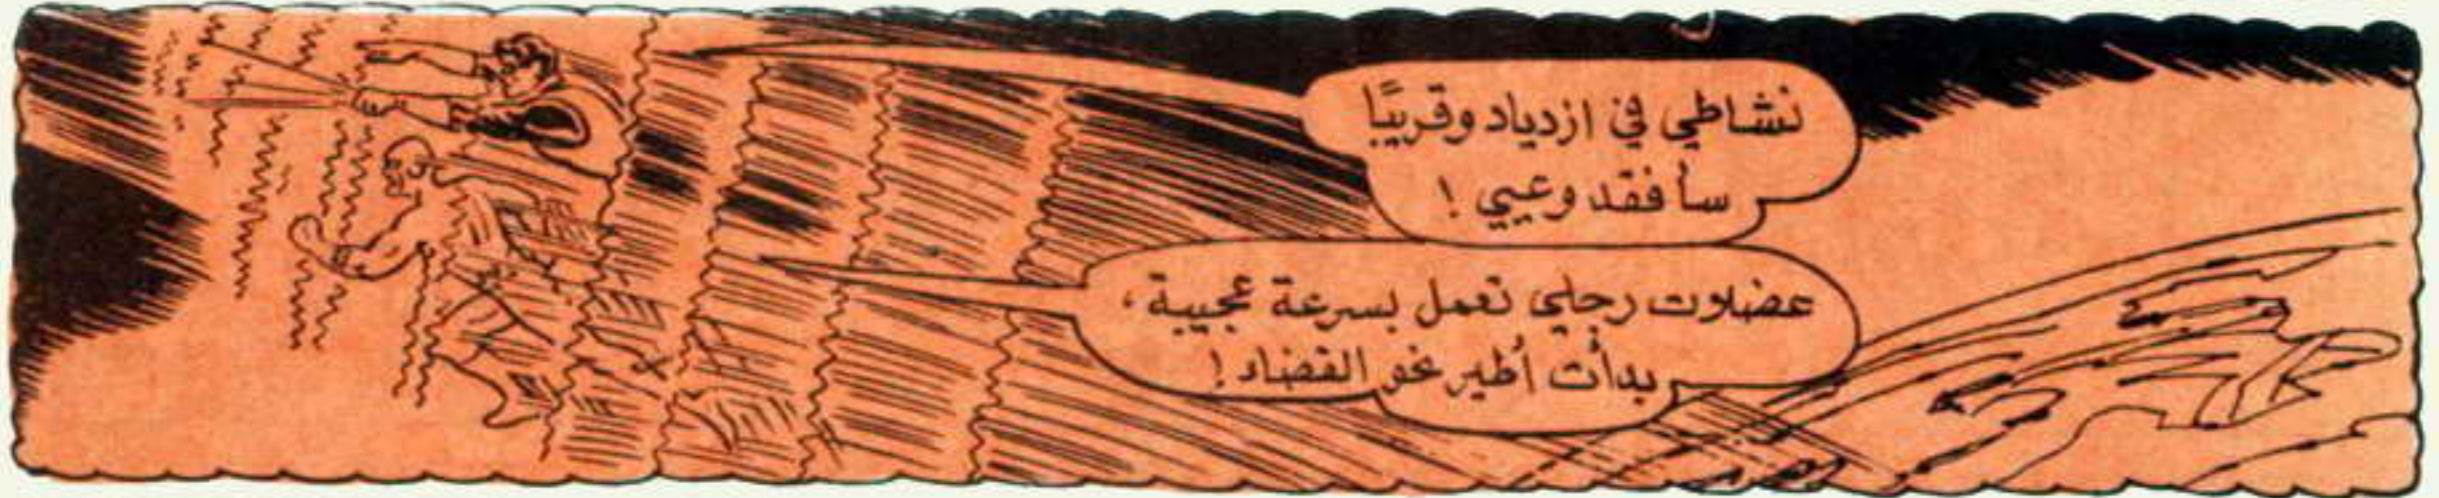 نشاطي في ازدياد وقريبًا
سأفقد وعيي !
عضلات رجلي تعمل بسرعة عجيبة ،
بدأت أطير نحو الفضاء !